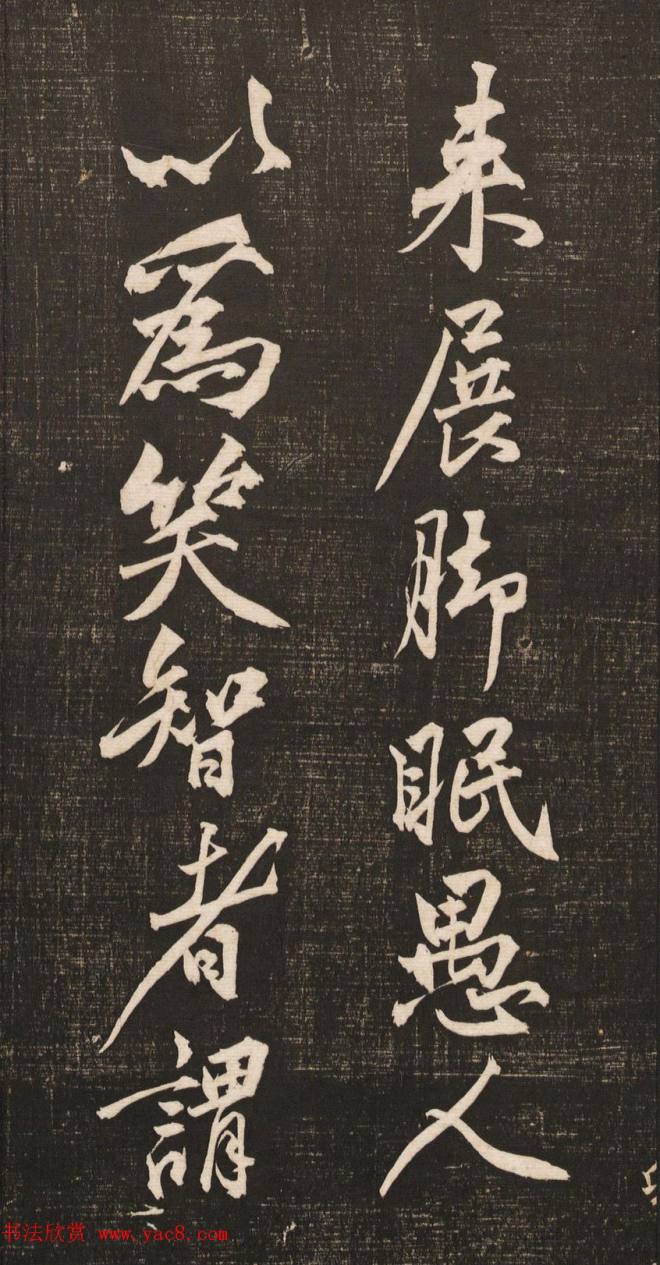 来展脚眠愚人
以為笑智者謂
书法欣赏 www.yac8.com